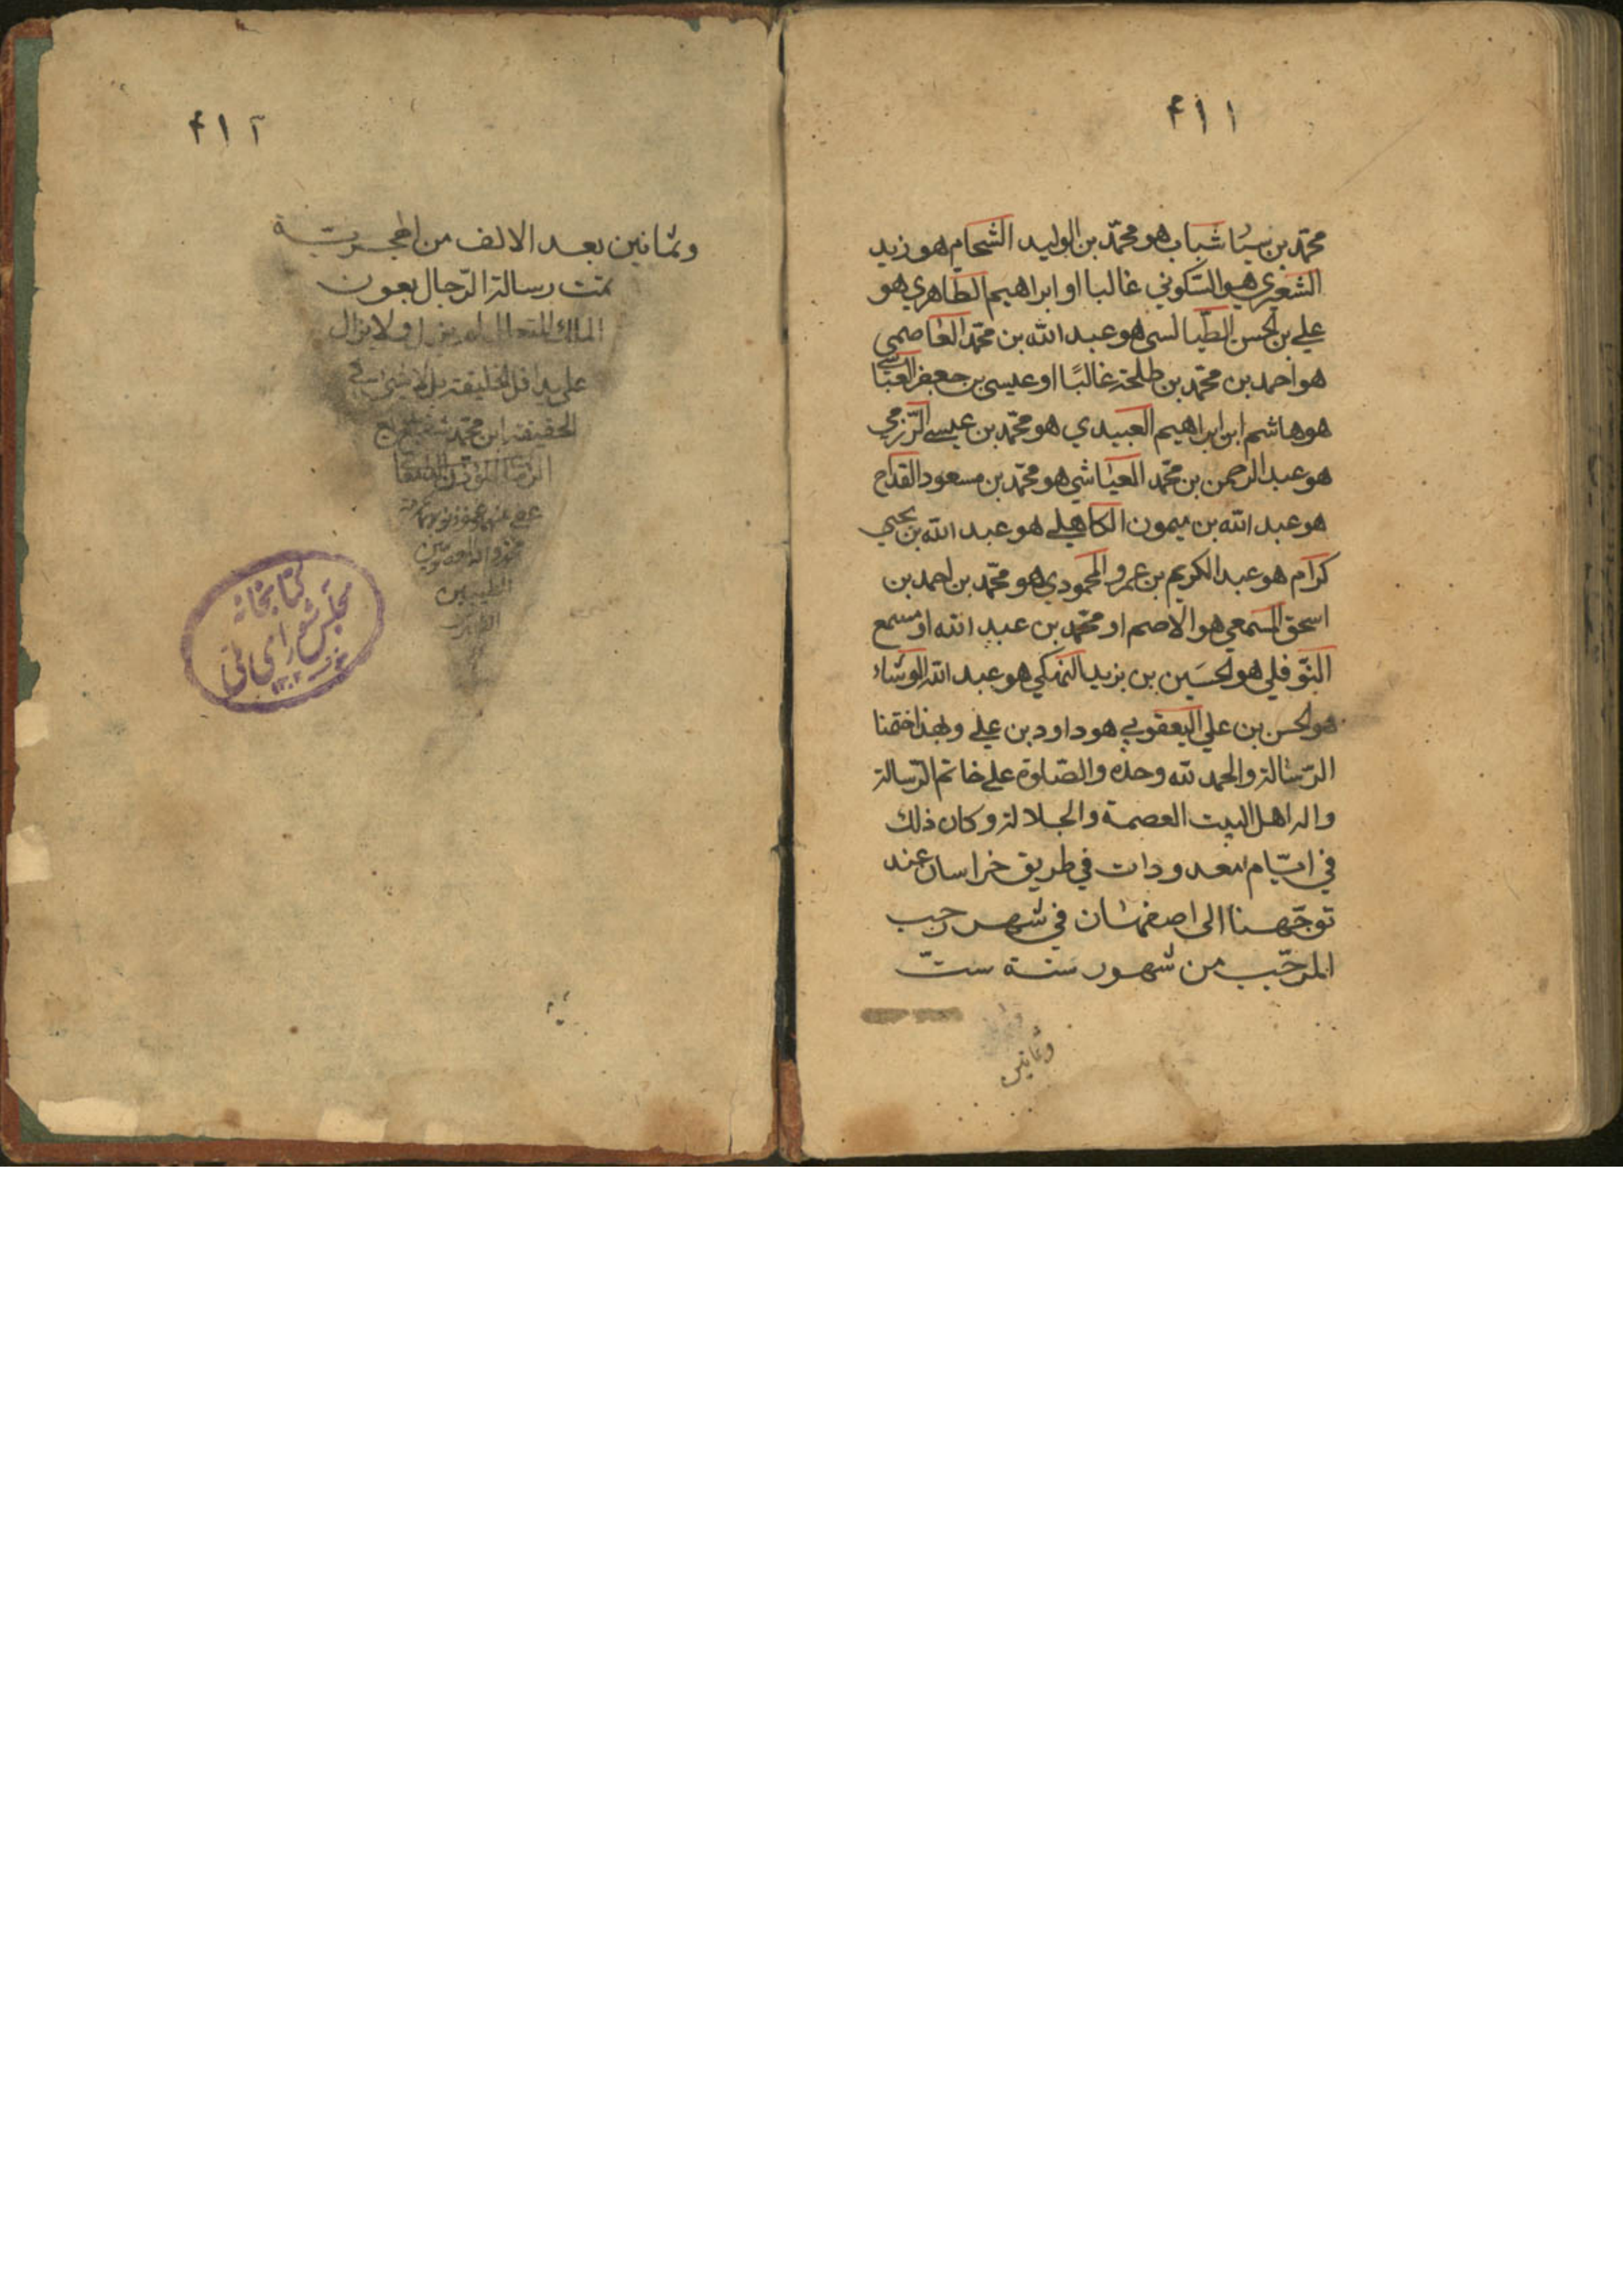 ۴۱۱
محمّد بن سنا شباب هو محمّد بن الوليد الشحام هو زيد
الشعيري هو السّكوني غالبا او ابراهيم الطاهري هو
علي بن الحسن الطيالسي هو عبد الله بن محمّد العاصمي
هو احمد بن محمّد بن طلحة غالبًا او عيسى بن جعفر العباسي
هو هاشم ابن ابراهيم العبيدي هو محمّد بن عيسى الرّزمي
هو عبد الرحمن بن محمّد العيّاشي هو محمّد بن مسعود القداح
هو عبد الله بن ميمون الكاهلي هو عبد الله بن يحيى
كرّام هو عبد الكريم بن عمرو المحمودي هو محمّد بن احمد بن
اسحق المسمعي هو الاصم او محمّد بن عبد الله او مسمع
النّوفلي هو الحسَين بن يزيد النهيكي هو عبد الله الوشّاء
هو الحسن بن علي اليعقوبي هو داود بن علي وبهذا ختمنا
الرّسالة والحمد لله وحده والصّلوة على خاتم الرّسالة
واله اهل البيت العصمة والجلالة وكان ذلك
في ايّام معدودات في طريق خراسان عند
توجّهنا الى اصفهان في شهر رجب
المرجّب من شهور سنة ستّ
وثمانين
۴۱۲
وثمانين بعد الالف من الهجريّة
تمت رسالة الرّجال بعون
الملك المتعال لم يزل ولا يزال
على يد اقل الخليقة بل لا شئ في
الحقيقة ابن محمّد شفيع
عفي عنهما
محمد واله المعصومين
الطيبين
الطاهرين
كتابخانه
مجلس شورای ملی
۱۳۰۲